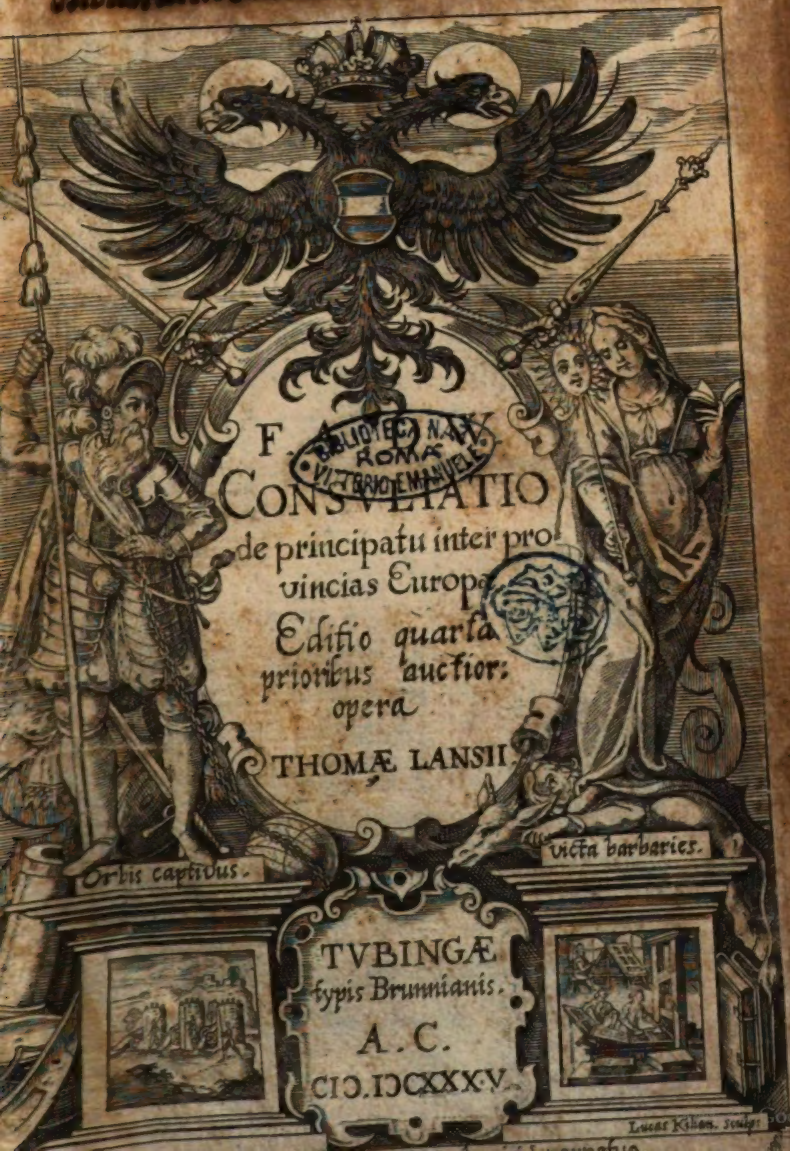 BIBLIOTECA NAZ.
ROMA
VITTORIO EMANUELE
CONSVLTATIO
de principatu inter pro
vincias Europæ
Editio quarta
prioribus auctior:
opera
THOMÆ LANSII
Orbis captivus.
victa barbaries.
TVBINGÆ
typis Brunnianis.
A. C.
CIƆ.IƆCXXXV
Lucas Kilian. sculps